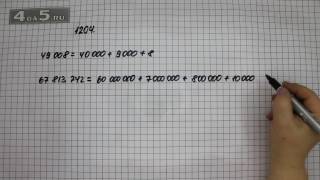 4a5.ru
1204.
49 008 = 40 000 + 9 000 + 8
67 813 742 = 60 000 000 + 7 000 000 + 800 000 + 10 000